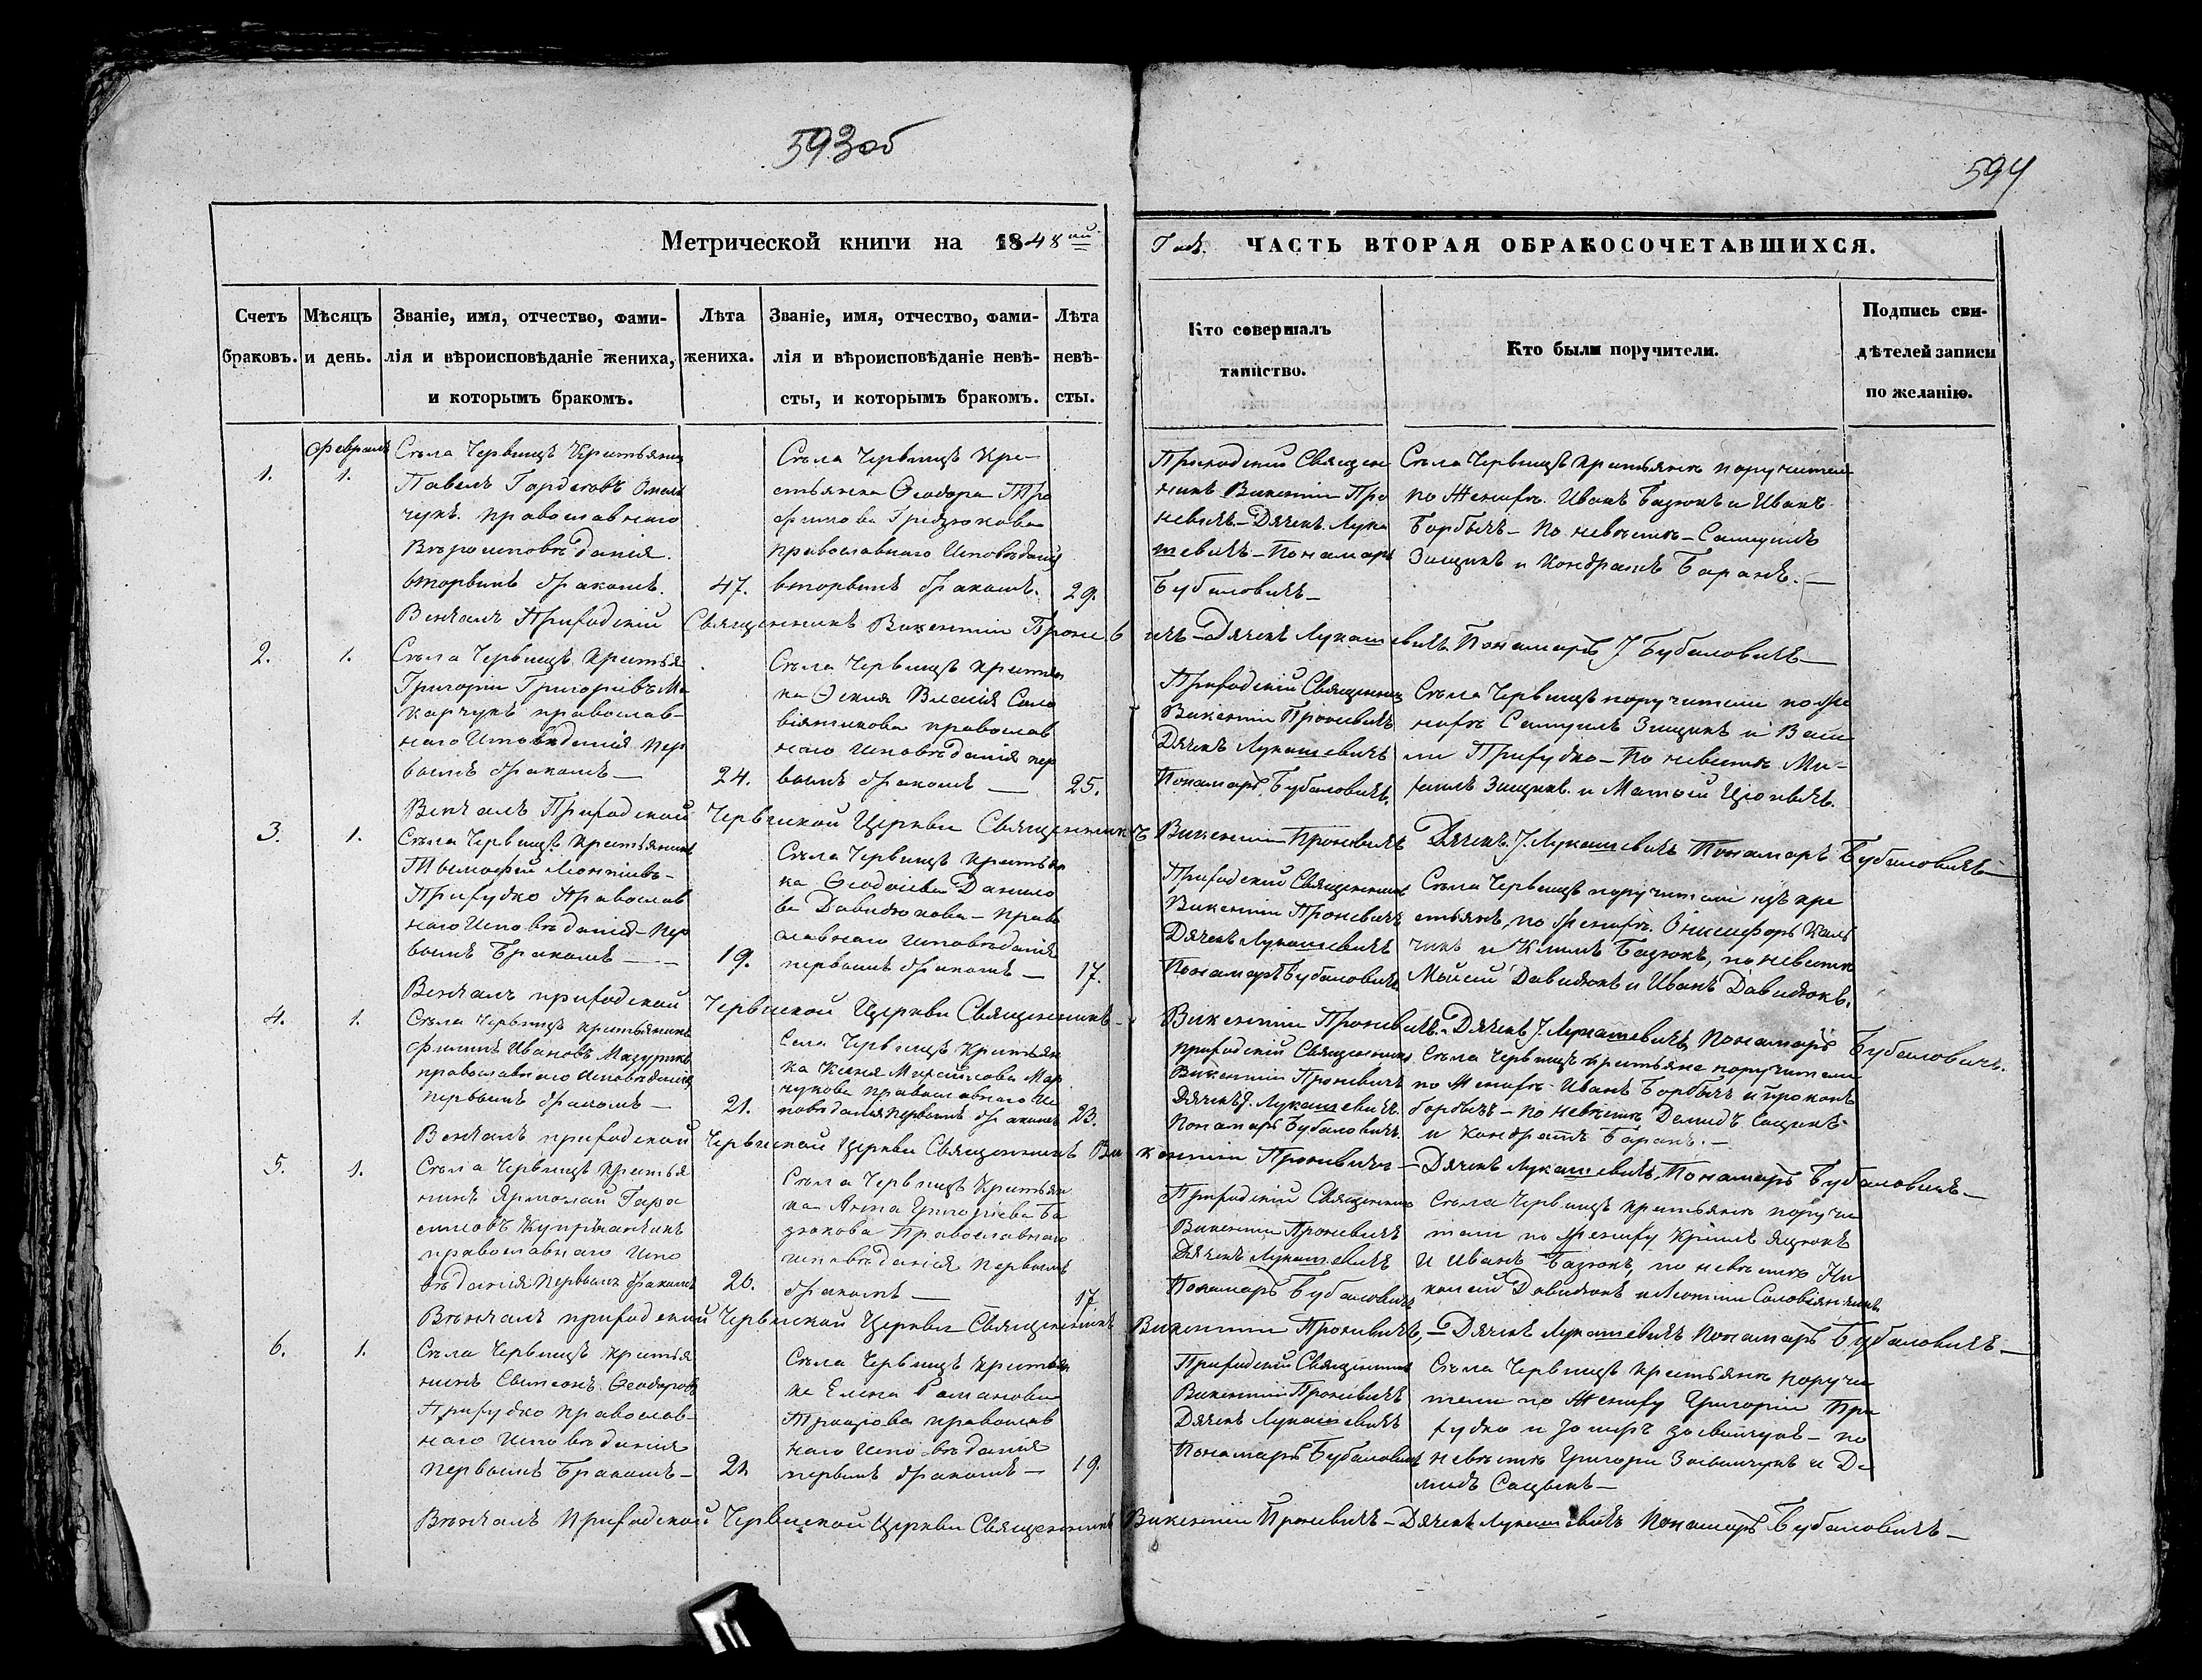 593 об
594
Метрической книги на 1848ый
Годъ. ЧАСТЬ ВТОРАЯ О БРАКОСОЧЕТАВШИХСЯ.
Счетъ браковъ.
Мѣсяцъ и день.
Званіе, имя, отчество, фами-
лія и вѣроисповѣданіе жениха,
и которымъ бракомъ.
Лѣта
жениха.
Званіе, имя, отчество, фами-
лія и вѣроисповѣданіе невѣ-
сты, и которымъ бракомъ.
Лѣта
невѣ-
сты.
Кто совершалъ
таинство.
Кто были поручители.
Подпись сви-
дѣтелей записи
по желанію.
1.
Февраля
1.
Съла Червищъ Крестьянин
Павелъ Гордѣевъ Омель
чукъ. православнаго
Вѣроисповѣданія.
вторымъ бракомъ.
47.
Съла Червищъ Кре-
стьянка Ѳеодора Тро
фимова Гредзюкова
православнаго Исповѣданія
вторымъ бракомъ.
29.
Приходскій Священ
никъ Викентій Про
невичъ - Дячекъ Лука
шевичъ - Понамарь
Бубаловичъ -
Съла Червищъ крестьянъ поручители
по Женихѣ Иванъ Базюкъ и Иванъ
Борбычъ - По невѣстѣ - Самуилъ
Зищикъ и Кондратъ Баранъ. -
Венчалъ Приходскій Священникъ Викентій Проневичъ - Дячекъ Лукашевичъ Понамарь J Бубаловичъ -
2.
1.
Съла Червищъ Крестья
Григорій Григоріевъ Ма
карчукъ православ-
наго Исповѣданія Пер
вымъ бракомъ -
24.
Съла Червищъ крестьян
ка Власія Соло
віянчикова православ
наго Исповѣданія пер
вымъ бракомъ -
25.
Приходскій Священникъ
Викентій Проневичъ
Дячекъ Лукашевичъ
Понамарь Бубаловичъ.
Съла Червищъ поручители по Же
нихѣ Самуилъ Зищикъ и Васи
ли Прихудко - По невѣстѣ Ми-
хаилъ Зищикъ. и Матѳей Цюпичъ.
Венчалъ Приходской Червиской Церкви Священникъ Викентій Проневичъ Дячекъ J. Лукашевичъ Понамарь Бубаловичъ -
3.
1.
Съла Червищъ крестьянинъ
Тимофей Леонтіевъ -
Прихудко Православ
наго Исповѣданія - Пер
вымъ Бракомъ -
19.
Съла Червищъ крестьян
ка Ѳеодосія Данило
ва Давидюкова - Право
славнаго исповѣданія
первымъ бракомъ -
17.
Приходскій Священникъ
Викентій Проневичъ
Дячекъ Лукашевичъ
Понамарь Бубаловичъ
Съла Червищъ поручители изъ кре
стьянъ, по Женихѣ. Онисифоръ Каль
чикъ и Климъ Базюкъ, по невѣстѣ
Мойсей Давидюкъ и Иванъ Давидюкъ.
Венчалъ приходской Червиской Церкви Священникъ - Викентій Проневичъ. Дячекъ J. Лукашевичъ Понамарь Бубаловичъ.
4.
1.
Съла Червищъ крестьянинъ
Филипъ Ивановъ Мазурикъ
православнаго исповѣданія
первымъ бракомъ -
21.
Села Червищъ Крестьян
ка Ксенія Михайлова Мар
чукова православнаго Ис
повѣданія Первымъ бракомъ
23.
Приходскій Священникъ
Викентій Проневичъ
Дячекъ J. Лукашевичъ
Понамарь Бубаловичъ.
Съла Червищъ крестьяне поручители
по Женихѣ - Иванъ Борбычъ и Прокопъ
борбычъ - по невѣстѣ Демидъ Сацикъ
и Кондратъ Баранъ. -
Венчалъ приходской Червиской Церкви Священникъ Викентій Проневичъ - Дячекъ Лукашевичъ, Понамарь Бубаловичъ -
5.
1.
Съла Червищъ крестья
нинъ Ярмолай Гара
симовъ Купріянчикъ
православнаго Испо
вѣданія Первымъ бракомъ
20.
Съла Червищъ Крестьян
ка Анна Григоріева Ба
зюкова Православнаго
исповѣданія первымъ
бракомъ -
17.
Приходскій Священникъ
Викентій Проневичъ
Дячекъ Лукашевичъ
Понамарь Бубаловичъ
Съла Червищъ крестьянъ поручи
тели по Жениху Ящюкъ
и Иванъ Базюкъ, по невѣстѣ Ни
колай Давидюкъ и Леонтій Соловіянчикъ
Вѣнчалъ приходской Червиской Церкви Священникъ Викентій Проневичъ, - Дячекъ Лукашевичъ Понамарь Бубаловичъ -
6.
1.
Съла Червищъ крестья
нинъ Свимеонъ Ѳеодоровъ
Прихудко православ-
наго исповѣданія
первымъ Бракомъ -
21.
Съла Червищъ крестьян
ка Елена Романовна
православ
наго исповѣданія
первымъ бракомъ -
19.
Приходскій Священникъ
Викентій Проневичъ
Дячекъ Лукашевичъ
Понамарь Бубаловичъ
Съла Червищъ крестьянъ поручи
тели по Жениху Григорій При
худко и - по
невѣстѣ Григорій и Де
мидъ Сацыкъ -
Вѣнчалъ Приходской Червиской Церкви Священникъ Викентій Проневичъ - Дячекъ Лукашевичъ Понамарь Бубаловичъ -